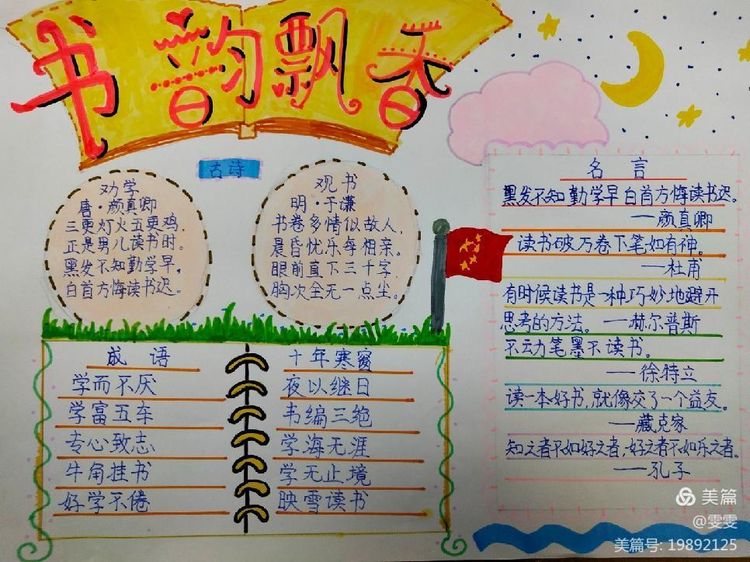 书韵飘香
古诗
劝学
唐·颜真卿
三更灯火五更鸡,
正是男儿读书时。
黑发不知勤学早,
白首方悔读书迟。
观书
明·于谦
书卷多情似故人,
晨昏忧乐每相亲。
眼前直下三千字,
胸次全无一点尘。
成语
学而不厌
学富五车
专心致志
牛角挂书
好学不倦
十年寒窗
夜以继日
韦编三绝
学海无涯
学无止境
映雪读书
名言
黑发不知勤学早白首方悔读书迟。
——颜真卿
读书破万卷下笔如有神。
——杜甫
有时候读书是一种巧妙地避开
思考的方法。——赫尔普斯
不动笔墨不读书。
——徐特立
读一本好书,就像交了一个益友。
——臧克家
知之者不如好之者,好之者不如乐之者。
——孔子
美篇
@雯雯
美篇号: 19892125